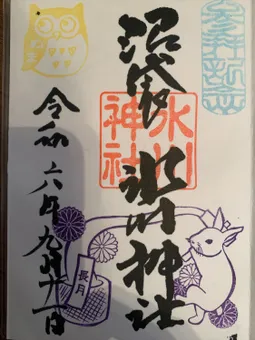 参拝記念
沼袋 氷川神社
氷川
神社
令和六年九月
長月